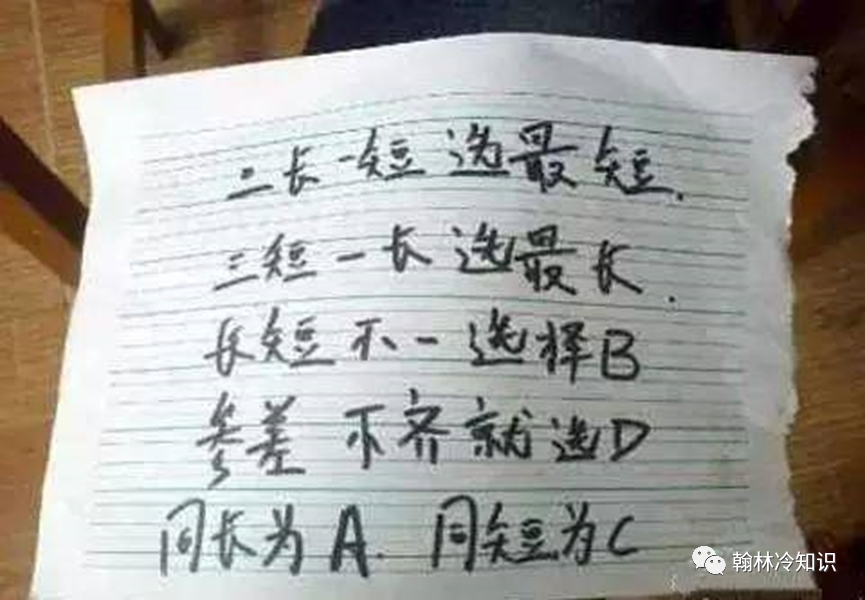 二长一短选最短.
三短一长选最长.
长短不一选择B
参差不齐就选D
同长为A.同短为C
翰林冷知识